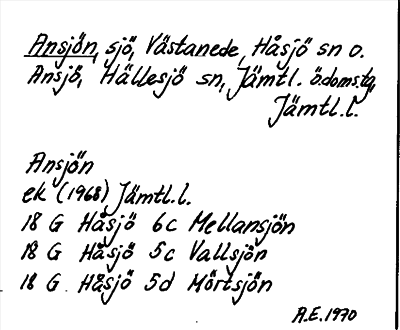 Ansjön, sjö, Västanede, Håsjö sn o.
Ansjö, Hällesjö sn, Jämtl. ö.doms.tg,
Jämtl.l.
Ansjön
ek (1968) Jämtl.l.
18 G Håsjö 6c Mellansjön
18 G Håsjö 5c Vallsjön
18 G. Håsjö 5d Mörtsjön
A.E. 1970